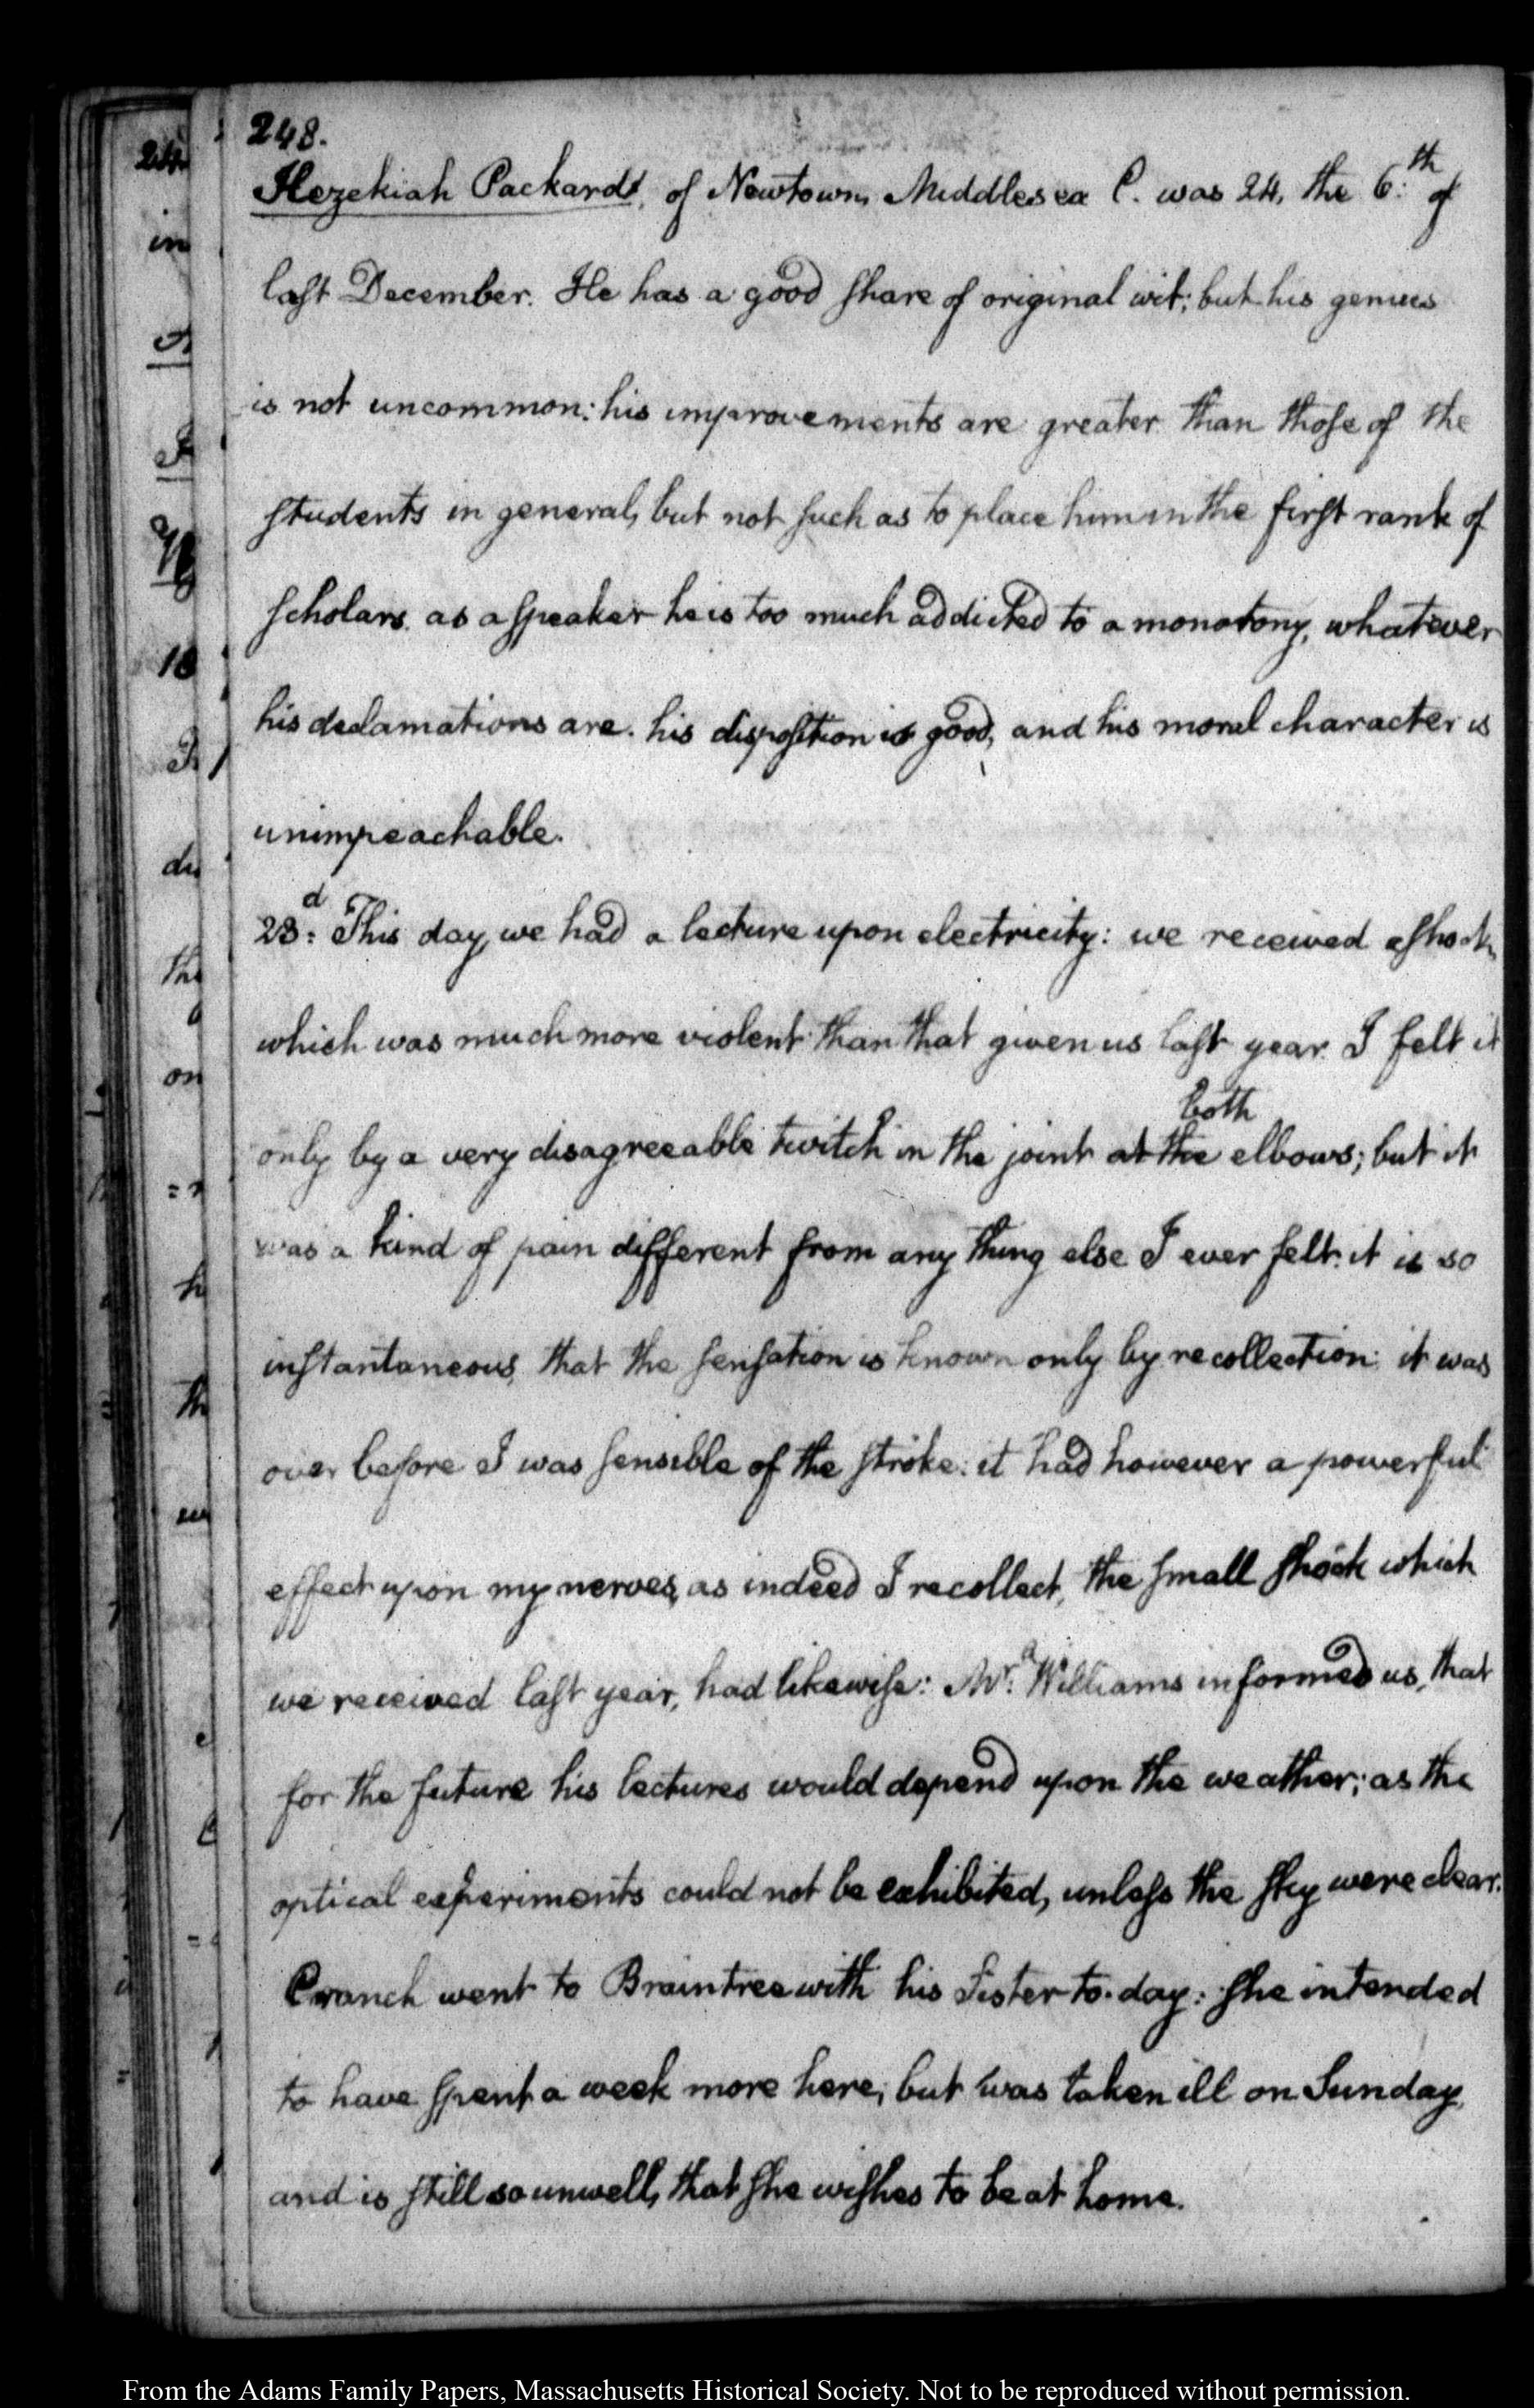 248.
Hezekiah Packard, of Newtown, Middlesex C. was 24, the 6:th of
last December. He has a good share of original wit; but his genius
is not uncommon: his improvements are greater than those of the
students in general, but not such as to place him in the first rank of
scholars. as a speaker he is too much addicted to a monotony, whatever
his declamations are. his disposition is good, and his moral character is
unimpeachable.
23:d This day, we had a lecture upon electricity: we received a shock,
which was much more violent than that given us last year. I felt it
both
only by a very disagreeable twitch in the joint at the elbows; but it
was a kind of pain different from any thing else I ever felt. it is so
instantaneous, that the sensation is known only by recollection: it was
over before I was sensible of the stroke: it had however a powerful
effect upon my nerves, as indeed I recollect, the small shock which
we received last year, had likewise: Mr. Williams informed us, that
for the future his lectures would depend upon the weather; as the
optical experiments could not be exhibited, unless the sky were clear.
Cranch went to Braintree with his Sister to-day: she intended
to have spent a week more here; but was taken ill on Sunday,
and is still so unwell, that she wishes to be at home.
From the Adams Family Papers, Massachusetts Historical Society. Not to be reproduced without permission.